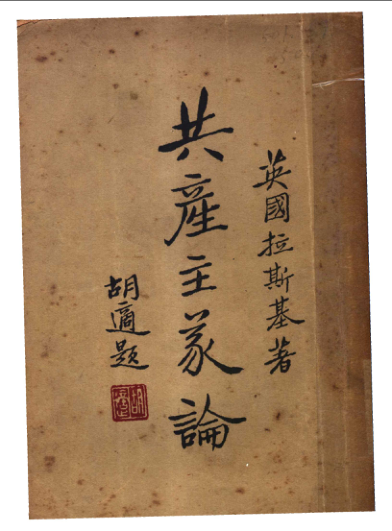 英國拉斯基著
共産主義論
胡適題